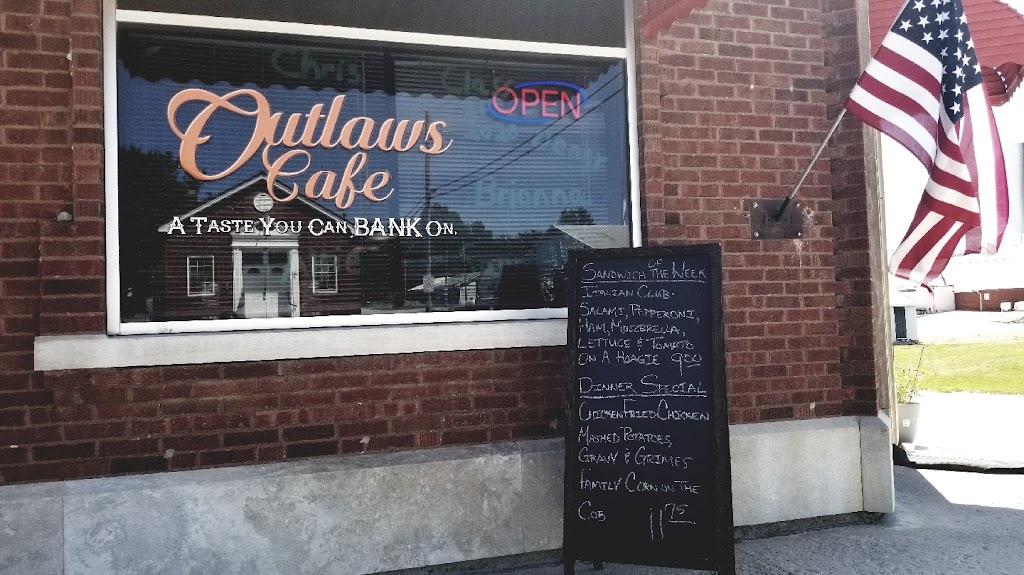 Chris
Outlaws
Cafe
A TASTE YOU CAN BANK ON.
OPEN
Brianna
SANDWICH OF THE WEEK
ITALIAN CLUB -
SALAMI, PEPPERONI,
HAM, MOZZERELLA,
LETTUCE & TOMATO
ON A HOAGIE 900
DINNER SPECIAL
CHICKEN FRIED CHICKEN
MASHED POTATOES,
GRAVY & GRIMES
FAMILY CORN ON THE
COB
11 75